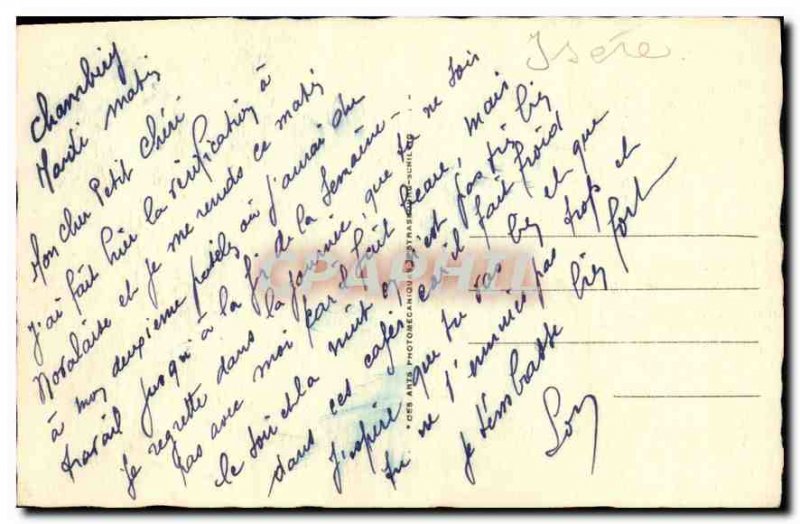 Isère
Chambéry
Mardi matin
Mon cher Petit Chéri
J'ai fait hier la vérification à
Novalaise et je me rends ce matin
à mon deuxième patelin où j'aurai du
travail jusqu'à la fin de la semaine -
Je regrette dans la journée, que tu ne sois
pas avec moi car il fait beau, mais
le soir et la nuit c'est pas très bien
dans ces cafés car il fait froid
J'espère que tu vas bien et que
tu ne t'ennuies pas trop et
je t'embrasse bien fort
CPARHIL
DES ARTS PHOTOMECANIQUES STRASBOURG-SCHILTIG